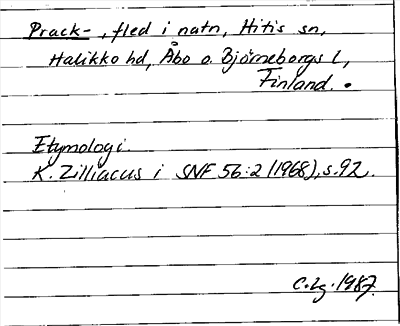 Prack-, fled i natn, Hitis sn,
Halikko hd, Åbo o. Björneborgs l,
Finland.
Etymologi.
K. Zilliacus i SNF 56:2 (1968), s. 92.
C. Lg. 1987.